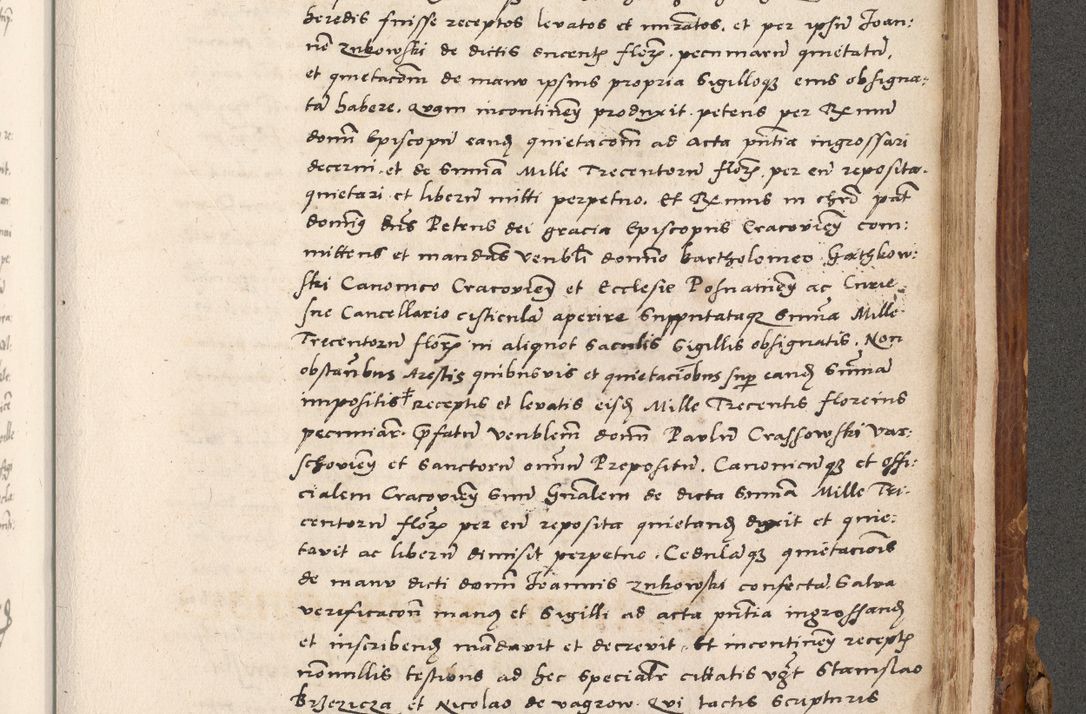 heredis fuisse receptos levatos et numeratos, et per ipsũ Joan:
nẽ Zukowski de dictis ducentζ florζ. pecuniarũ quietatũ,
et quietacom̃ de manu ipsius propria Sigilloqζ eius obsigna:
tã habere. Quam incontineñ produxit. petens per Rx̃mum
domñ Episcopũ eandζ quietacom̃ ad acta pñtia ingrossari
decerni. et de Summa Mille Trecentorũ florζ. per eũ reposita.
quietari et liberũ mitti perpetuo. Et Rx̃mus in chrõ pat̃
dominꝰ dñs Petrus dei gracia Episcopus Cracovieñ com:
mittens et mandãs venbli domino Bartholomeo Gathkow:
ski Canonico Cracovieñ et Ecclesie Posnanieñ ac Curie
sue Cancellario cisticulã aperire Supputataqζ Summa Mille
Trecentorũ florζ in aliquot Sacculis Sigillis obsignatis. Non
obstañbus Arestis quibusvis et quietaciõbus sup eandζ Sum̃a
impositis receptis et levatis eisdζ Mille Trecentis florenis
pecuniarζ. P̃fatũ venblem̃ domñ Paulũ Crassowski Var:
schovieñ et Sanctorũ om̃nũ Prepositũ. Canonicũqζ et offi:
cialem Cracovieñ Suũ Gñalem de dicta Summa Mille Tri:
centorũ florζ per eũ reposita quietandζ duxit et quie:
tavit ac liberũ dimisit perpetuo. Cedulãqζ quietaciõis
de manu dicti domñ Joannis Zukowski confectã. Salva
verificacoñ manuꝰ et Sigilli ad acta pñtia ingrossandζ
et inscribendζ mãdavit et decrevit. Et incontineñ receptζ
nõnullis testibus ad hec specialr̃ citatis vζt Stanislao
Brzezicza et Nicolao de vagrow. Qui tactis Scripturis